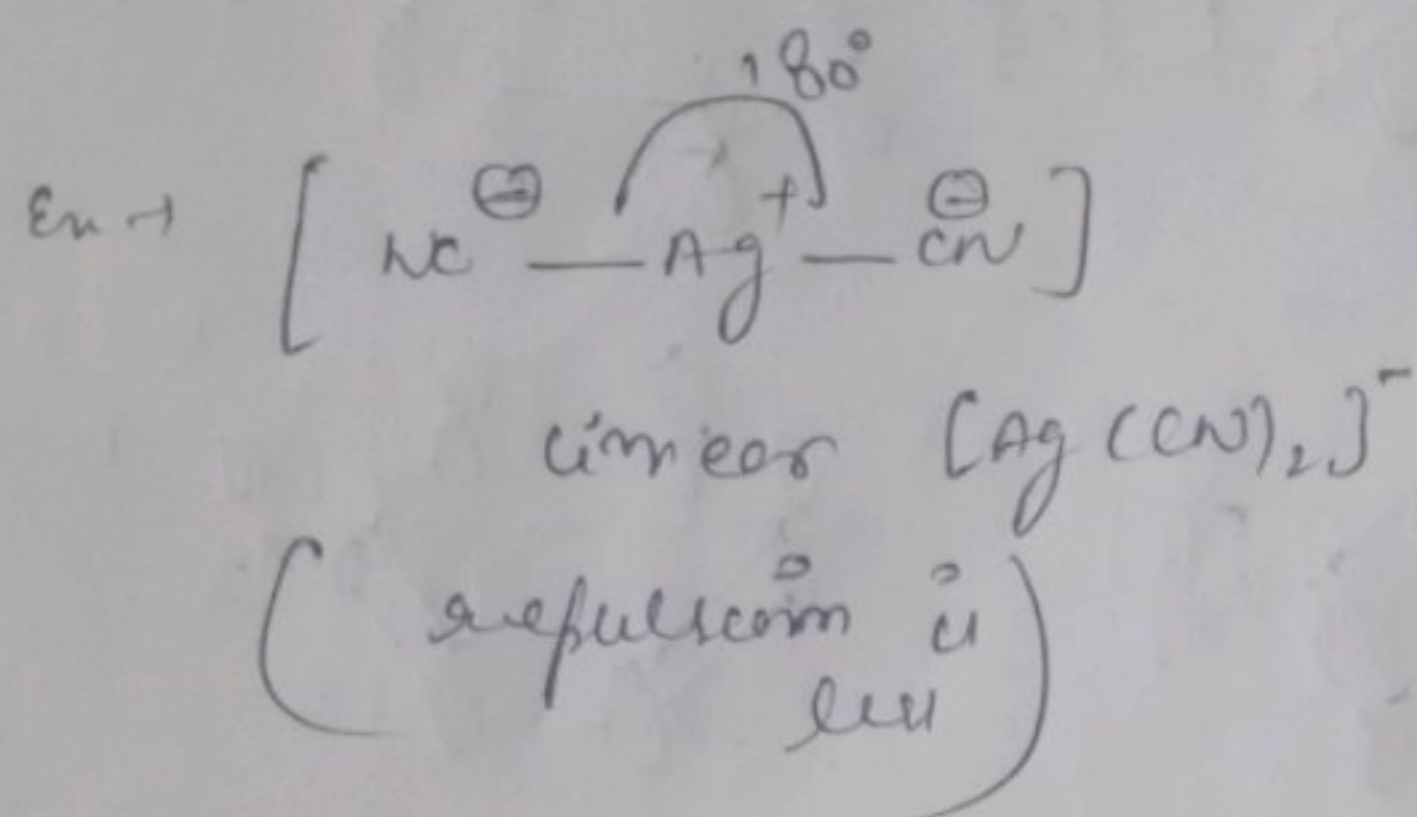 180°
Ex → [ NC⊖ — Ag+ — CN⊖ ]
linear [Ag(CN)2]-
( repulsion is
less )